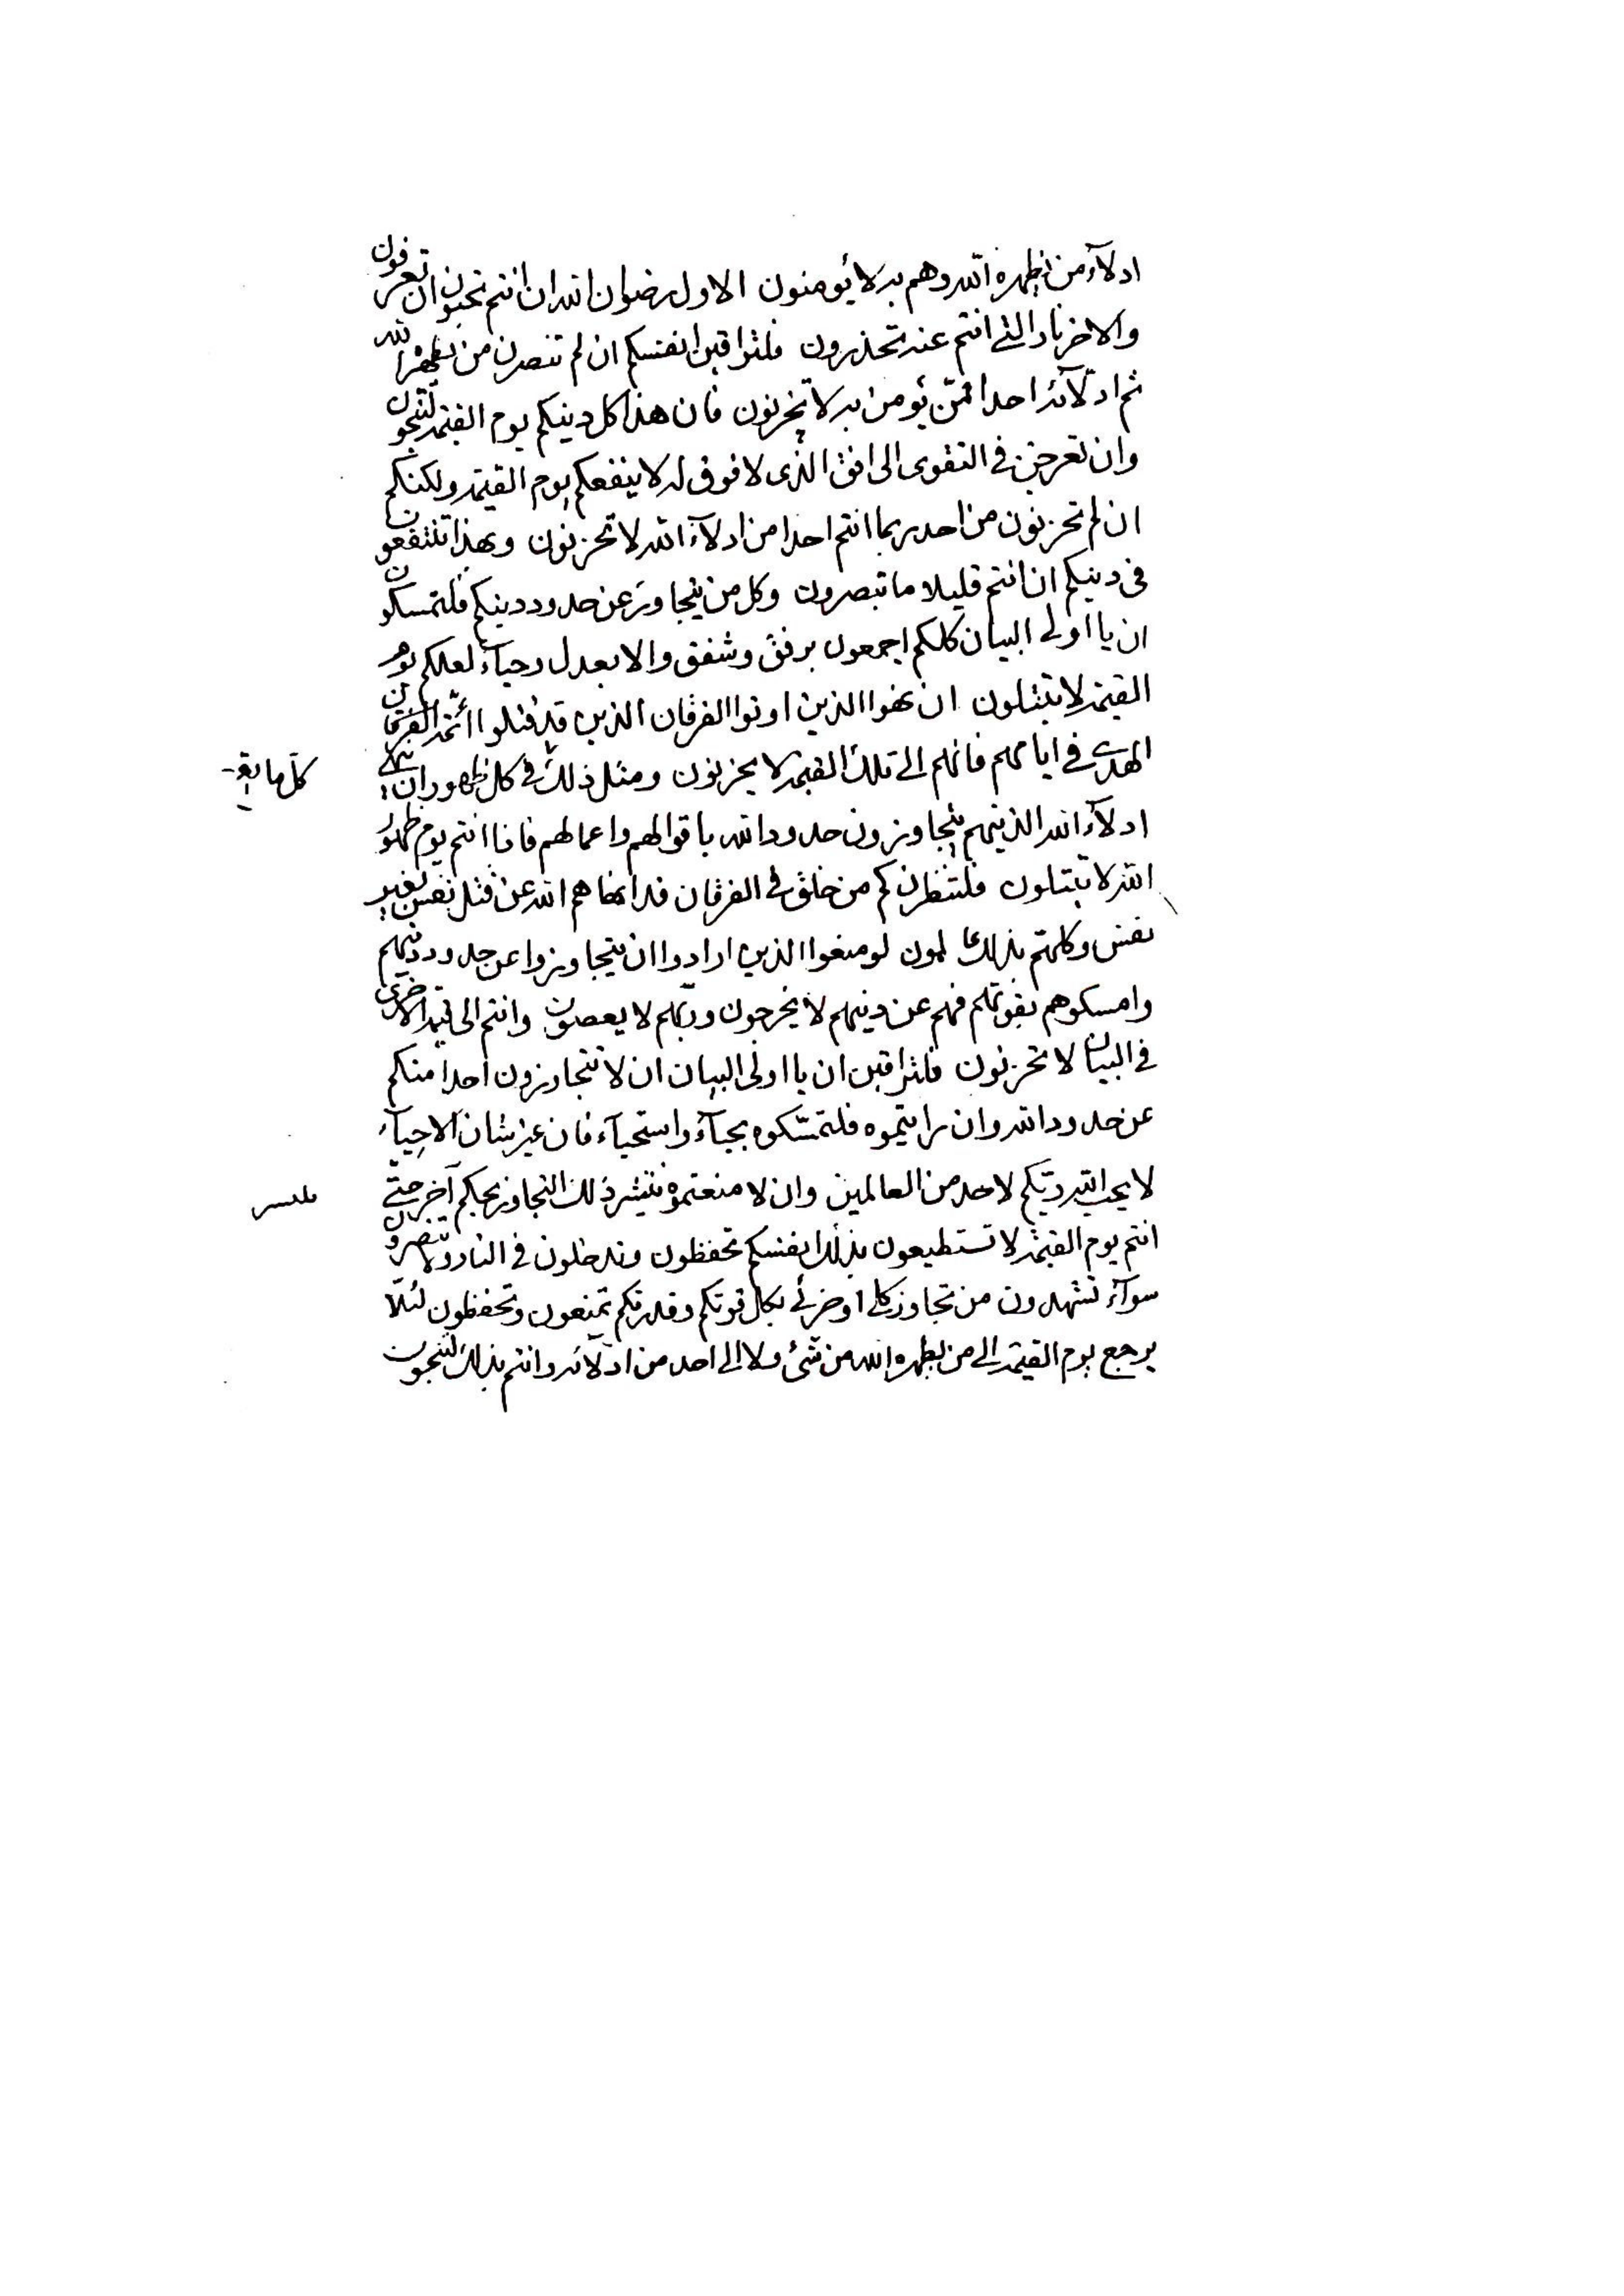 ادلآء من يظهره الله وهم به لا يؤمنون الاول رضوان الله ان انتم تحبون ان تعرفون
والاخر نار التى انتم عنه تحذرون فلتراقبن انفسكم ان لم تنصرن من يظهره الله
ثم ادلآئه احدا ممن يؤمن به لا تحزنون فان هذا كل دينكم يوم القيمة لتنجون
وان تعرجن فى التقوى الى افق الذى لا فوق له لا ينفعكم يوم القيمة ولكنكم
ان لم تحزنون من احد ربما انتم احدا من ادلآء الله لا تحزنون وبهذا تنتفعون
فى دينكم ان انتم قليلا ما تبصرون وكل من يتجاوز عن حدود دينكم فلتمسكون
ان يا اولى البيان كلكم اجمعون برفق وشفق والا بعدل وحياء لعلكم يوم
القيمة لا تبتلون ان نهوا الذين اوتوا الفرقان الذين قد قتلوا ائمة الفرقان
الهدى فى ايامهم فانهم الى تلك القيمة لا يحزنون ومثل ذلك فى كل ظهور ان
كل ما بقى
ادلآء الله الذينهم يتجاوزون حدود الله باقوالهم واعمالهم فاذا انتم يوم ظهور
الله لا تبتلون فلتنظرن كم من خلق فى الفرقان قد انهاهم الله عن قتل نفس بغير
نفس وكلهم بذلك عالمون لو منعوا الذين ارادوا ان يتجاوزوا عن حدود دينهم
وامسكوهم بقوتهم فهم عن دينهم لا يخرجون وربهم لا يعصون وانتم الى قيمة الاخرى
فى البيان لا تحزنون فلتراقبن ان يا اولى البيان ان لا تتجاوزون احدا منكم
عن حدود الله وان رايتموه فلتمسكوه بحيآء واستحيآء فان غير شان الاحيآء
لا يحب الله ربكم لاحد من العالمين وان لا منعتموه فتيشر ذلك التجاوز بحكم آخر حتى
انتم يوم القيمة لا تستطيعون بذلك انفسكم تحفظون وتدخلون فى النار ولا تنصرون
سوآء تشهدون من تجاوز كلى او جزئى بكل قوتكم وقدرتكم تمنعون وتحفظون لئلا
يرجع يوم القيمة الى من يظهره الله من شئ ولا الى احد من ادلآئه وانتم بذلك لتنجون